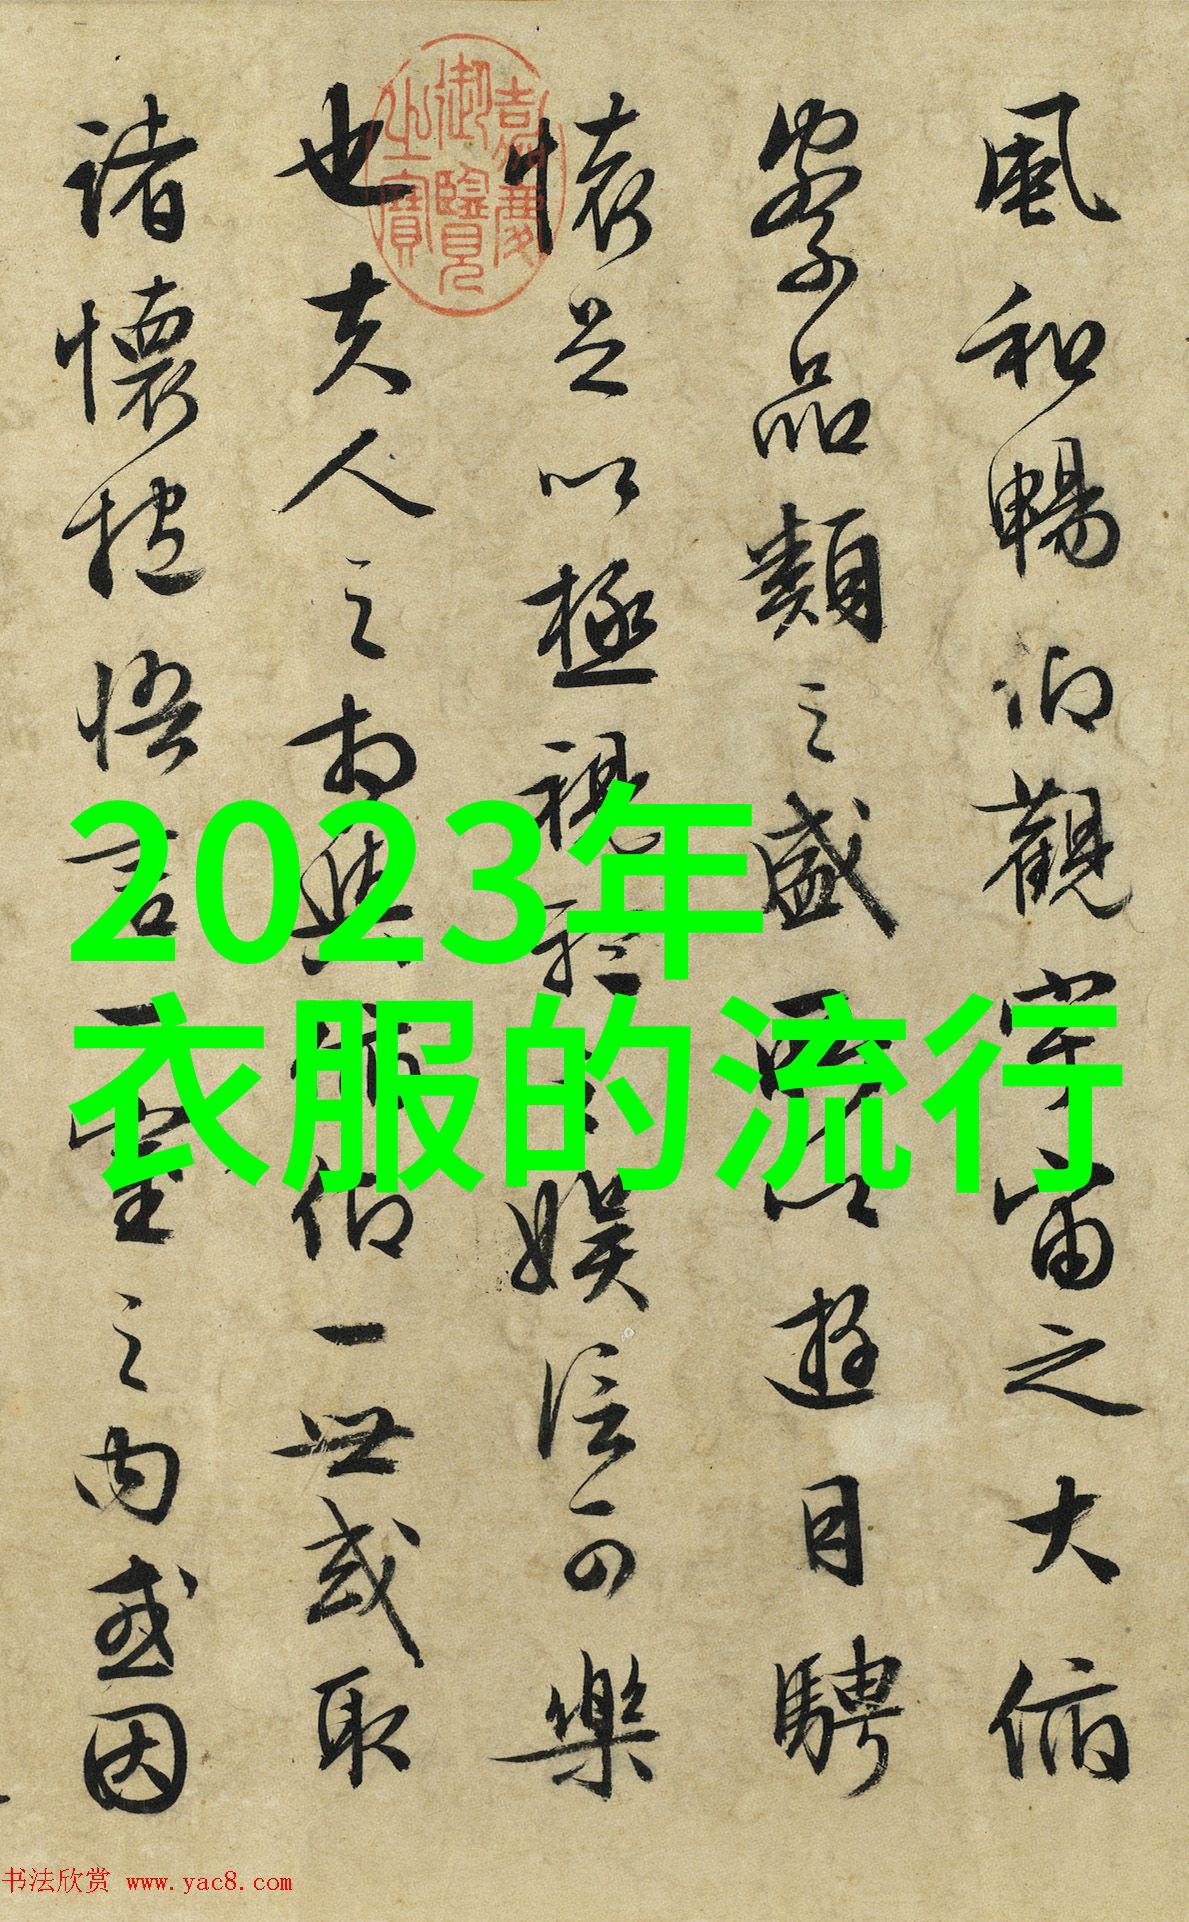 風和暢仰觀宇宙之大俯
察品類之盛所以遊目騁
懷足以極視聽之娛信可樂
也夫人之相與俯仰一世或取
諸懷抱悟言一室之内或因
嘉慶
御覽
之寶
2023年
衣服的流行
书法欣赏 www.yac8.com